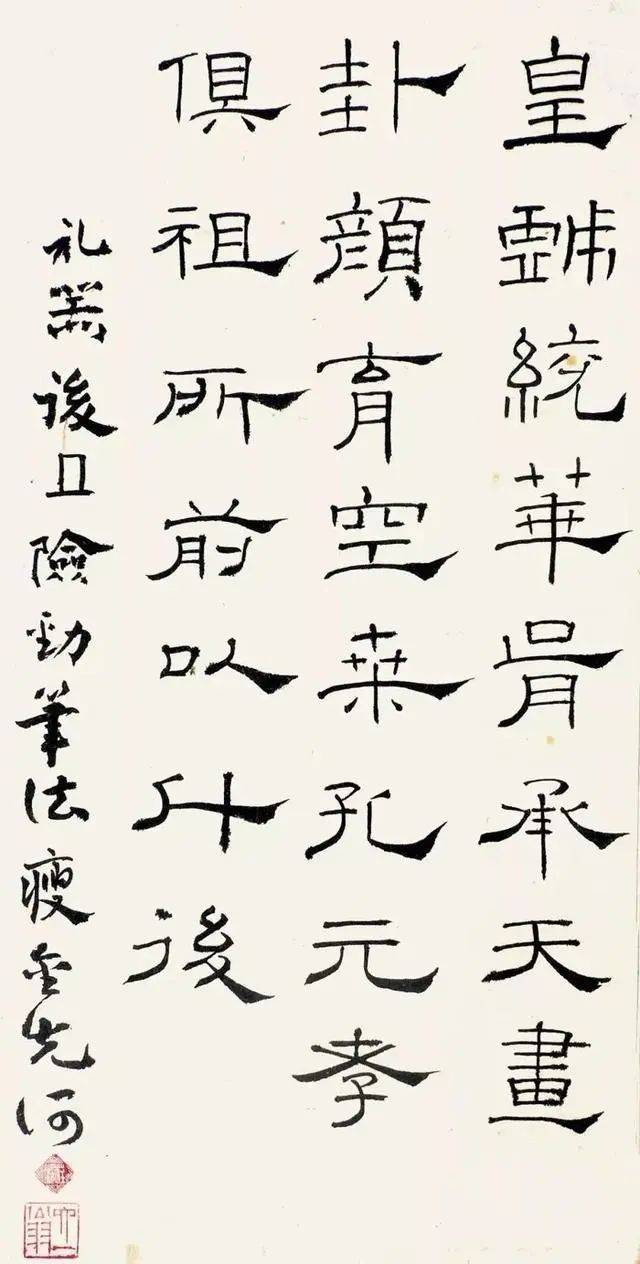 皇戲統華胥承天畫
卦顏育空桑孔元孝
俱祖所前以什後
礼器且險勁筆法瘦金先河